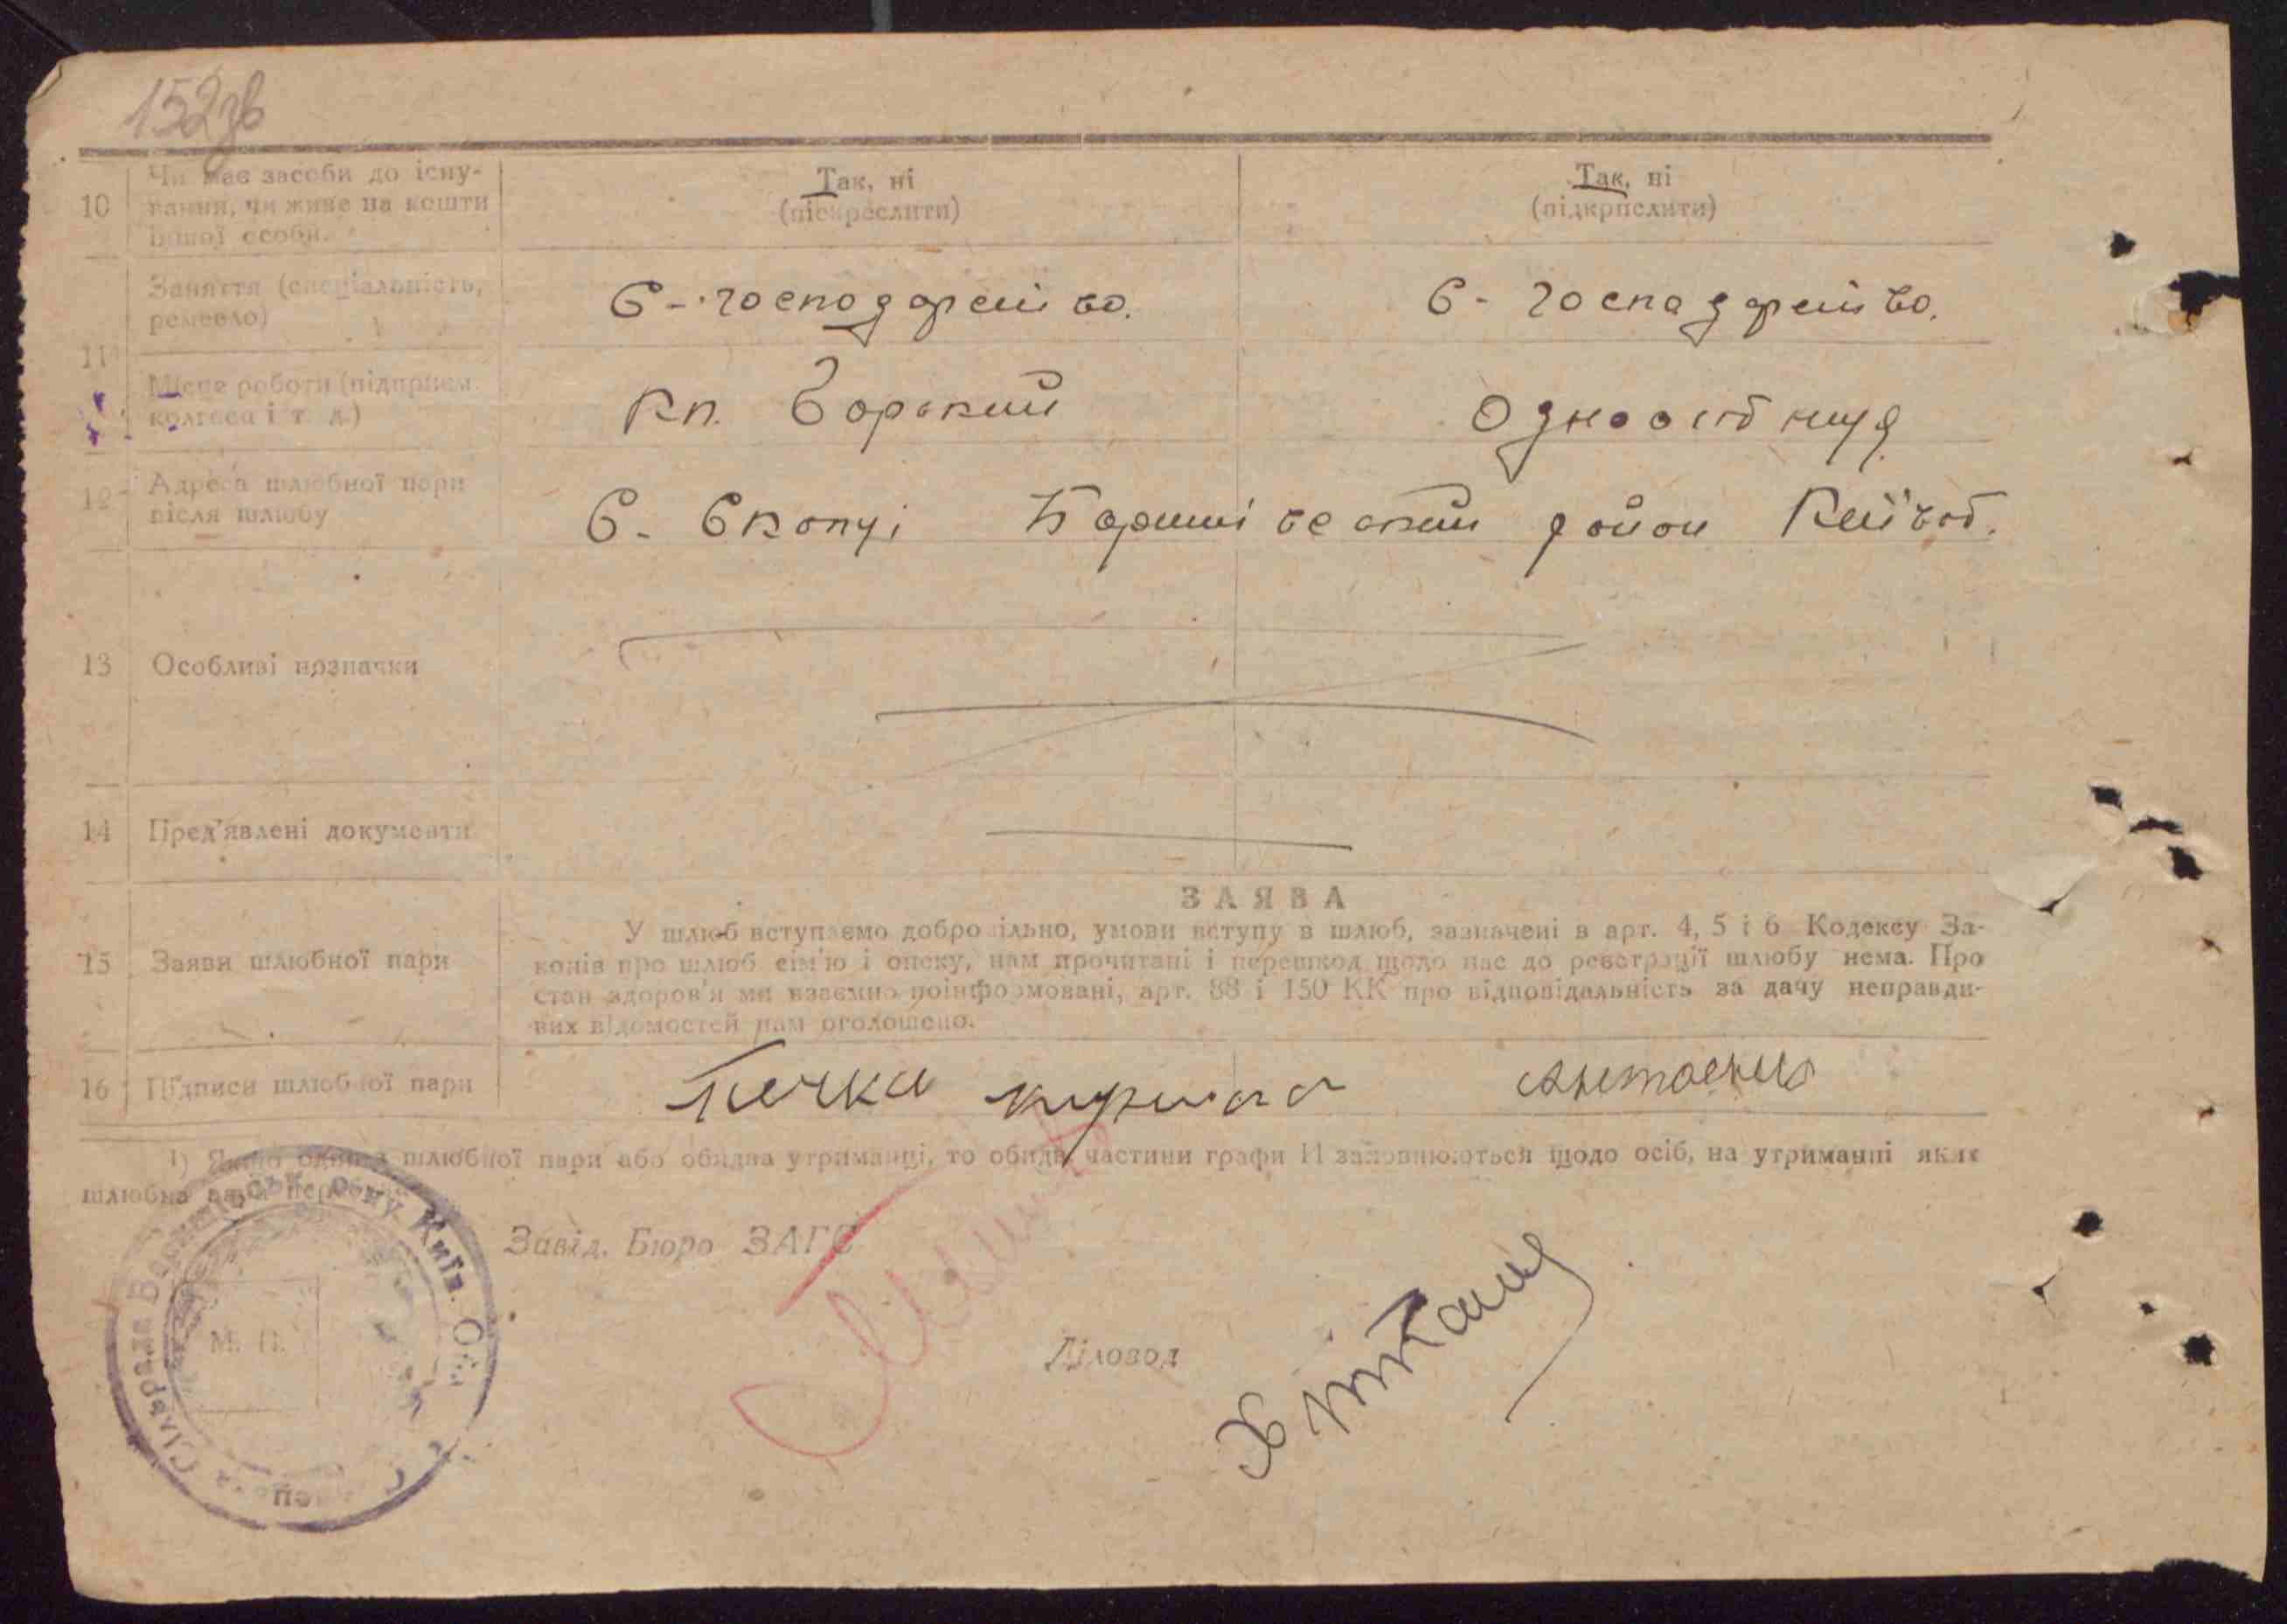 152зв
10 Чи має засоби до існу-
вання, чи живе на кошти
іншої особи.
Так, ні
(підкреслити)
Так, ні
(підкрпслити)
11
Заняття (спеціальність,
ремесло)
С-господарство.
С-господарство.
Місце роботи (підприєм.
колгосп і т. д.)
Кп. Борький
Одноосібниця
12 Адреса шлюбної пари
після шлюбу
С. Скопці Баришівський район Київоб.
13 Особливі позначки
14 Пред'явлені документи
15 Заяви шлюбної пари
ЗАЯВА
У шлюб вступаємо добровільно, умови вступу в шлюб, зазначені в арт. 4, 5 і 6 Кодексу За-
конів про шлюб сім'ю і опеку, нам прочитані і перешкод щодо нас до реєстрації шлюбу нема. Про
стан здоров'я ми взаємно поінформовані, арт. 88 і 150 КК про відповідальність за дачу неправди-
вих відомостей нам оголошено.
16 Підписи шлюбної пари
1) Якщо один з шлюбної пари або обидва утриманці, то обидві частини графи 11 заповнюються щодо осіб, на утриманні яких
шлюбна пара
Завід. Бюро ЗАГС
М. П.
Діловод
Сільрада Баришівськ. р-ну Київ. Об.